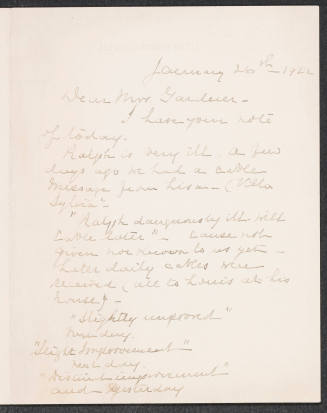 January 26th 1922
Dear Mrs Gardner -
I have your note
of today.
Ralph is very ill. a few
days ago we had a cable
message from Lisa - (Villa
Sylvia" -
"Ralph dangerously ill will
cable later" - Cause not
given nor known to us yet -
Later daily cables were
received (all to Louis at his
house) -
"Slightly improved"
one day.
"Slight Improvement"
next day.
"Distinct improvement"
and yesterday